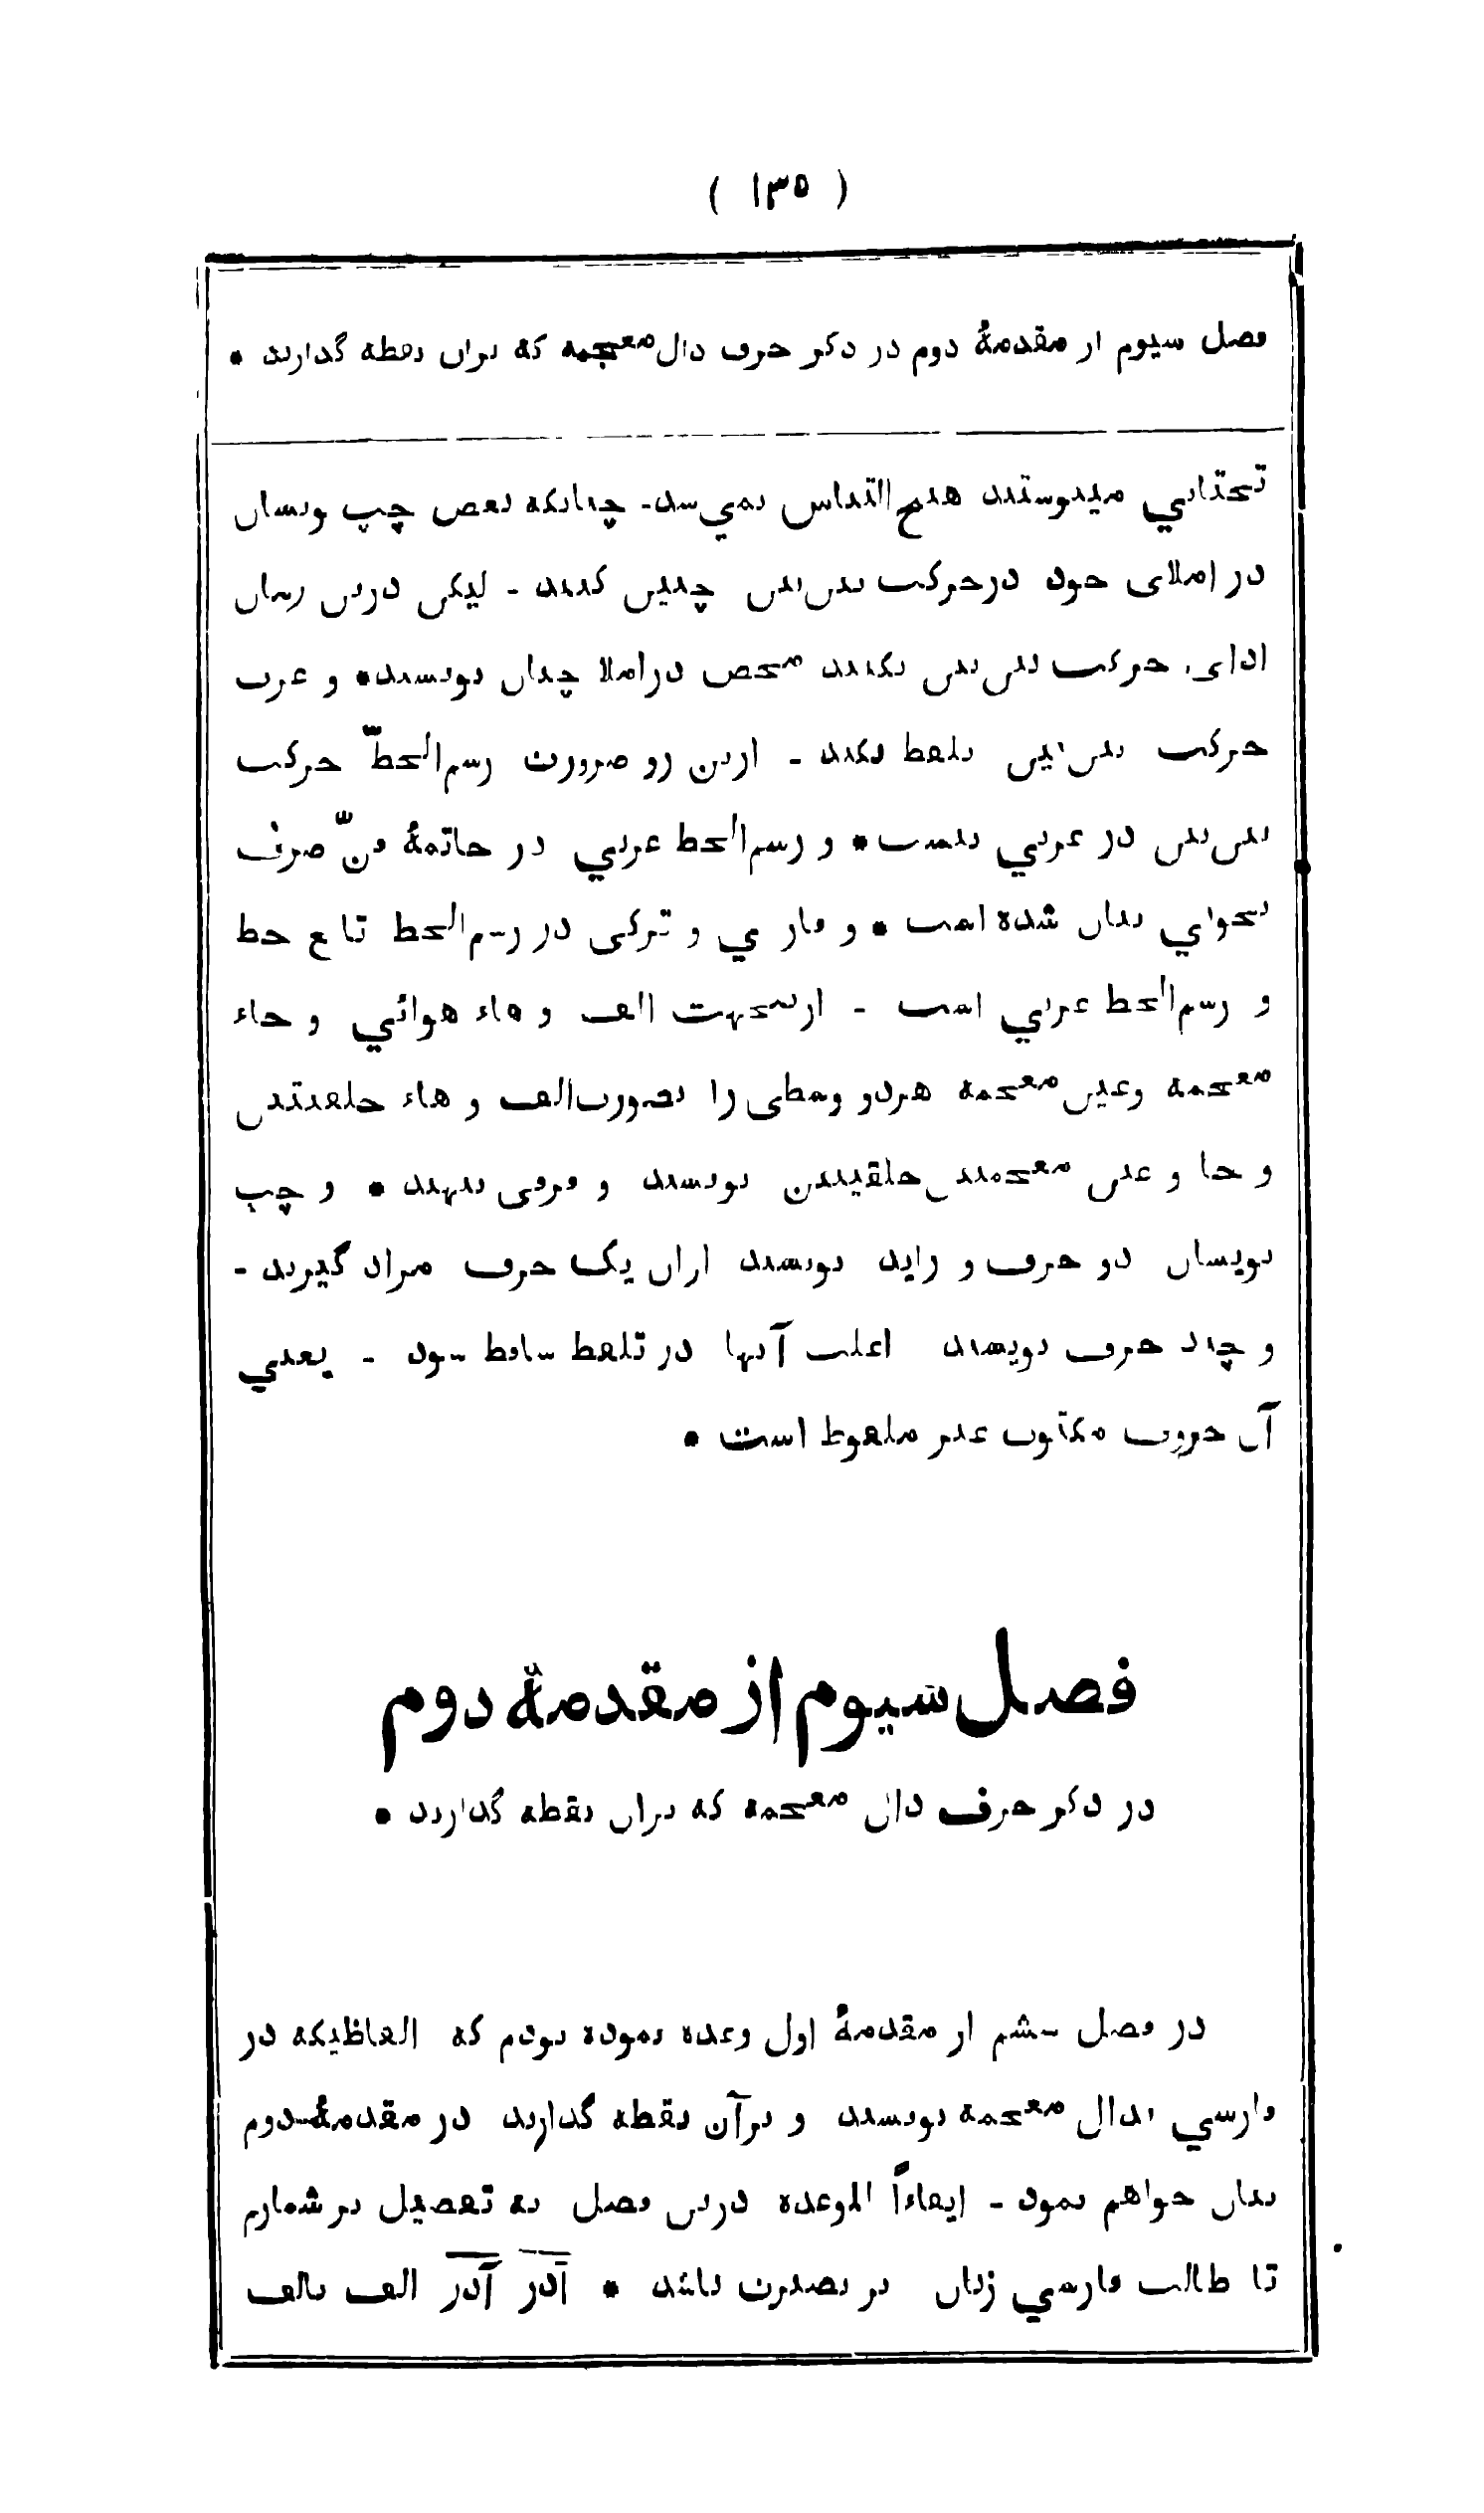 ( ١٣٥ )
فصل سیوم از مقدمهٔ دوم در ذکر حرف ذال معجمه که بران نقطه گذارند •
تحتاني مینوستند هیچ التباس نمي‌شد - چنانکه بعض چپ نویسان
در املای خود درحرکت بین بین چنین کنند - لیکن درین زمان
ادای حرکت بین بین نکنند محض دراملا چنان نویسند • و عرب
حرکت بین بین تلفظ نکند - ازین رو ضرورت رسم الخطّ حرکت
بین بین در عربي نیست • و رسم الخط عربي در خاتمهٔ فنّ صرف
بیان شده است • و فارسي و ترکی در رسم الخط تابع خط
و رسم الخط عربي است - ازینجهت الف و هاء هوائي و حاء
معجمه وغین معجمه هردو وسطی را بصورت الف و هاء حلقیتین
و خا و غین معجمتین حلقیتین نویسند و فرقی ننهند • و چپ
نویسان دو حرف و زاید نویسند ازان یک حرف مراد گیرند -
و چند حرف نویسند اغلب آنها در تلفظ ساقط شود - یعني
آن حروف مکتوب غیر ملفوظ است •
فصل سیوم از مقدمهٔ دوم
در ذکر حرف ذال معجمه که بران نقطه گذارند •
در فصل ششم از مقدمهٔ اول وعده نموده بودم که الفاظیکه در
فارسي بذال معجمه نویسند و برآن نقطه گذارند در مقدمهٔ دوم
بیان خواهم نمود - ایفاءاً للوعده درین فصل به تفصیل بر شمارم
تا طالب فارسي زبان بر بصیرت باشد • آذر آذر الف بالف